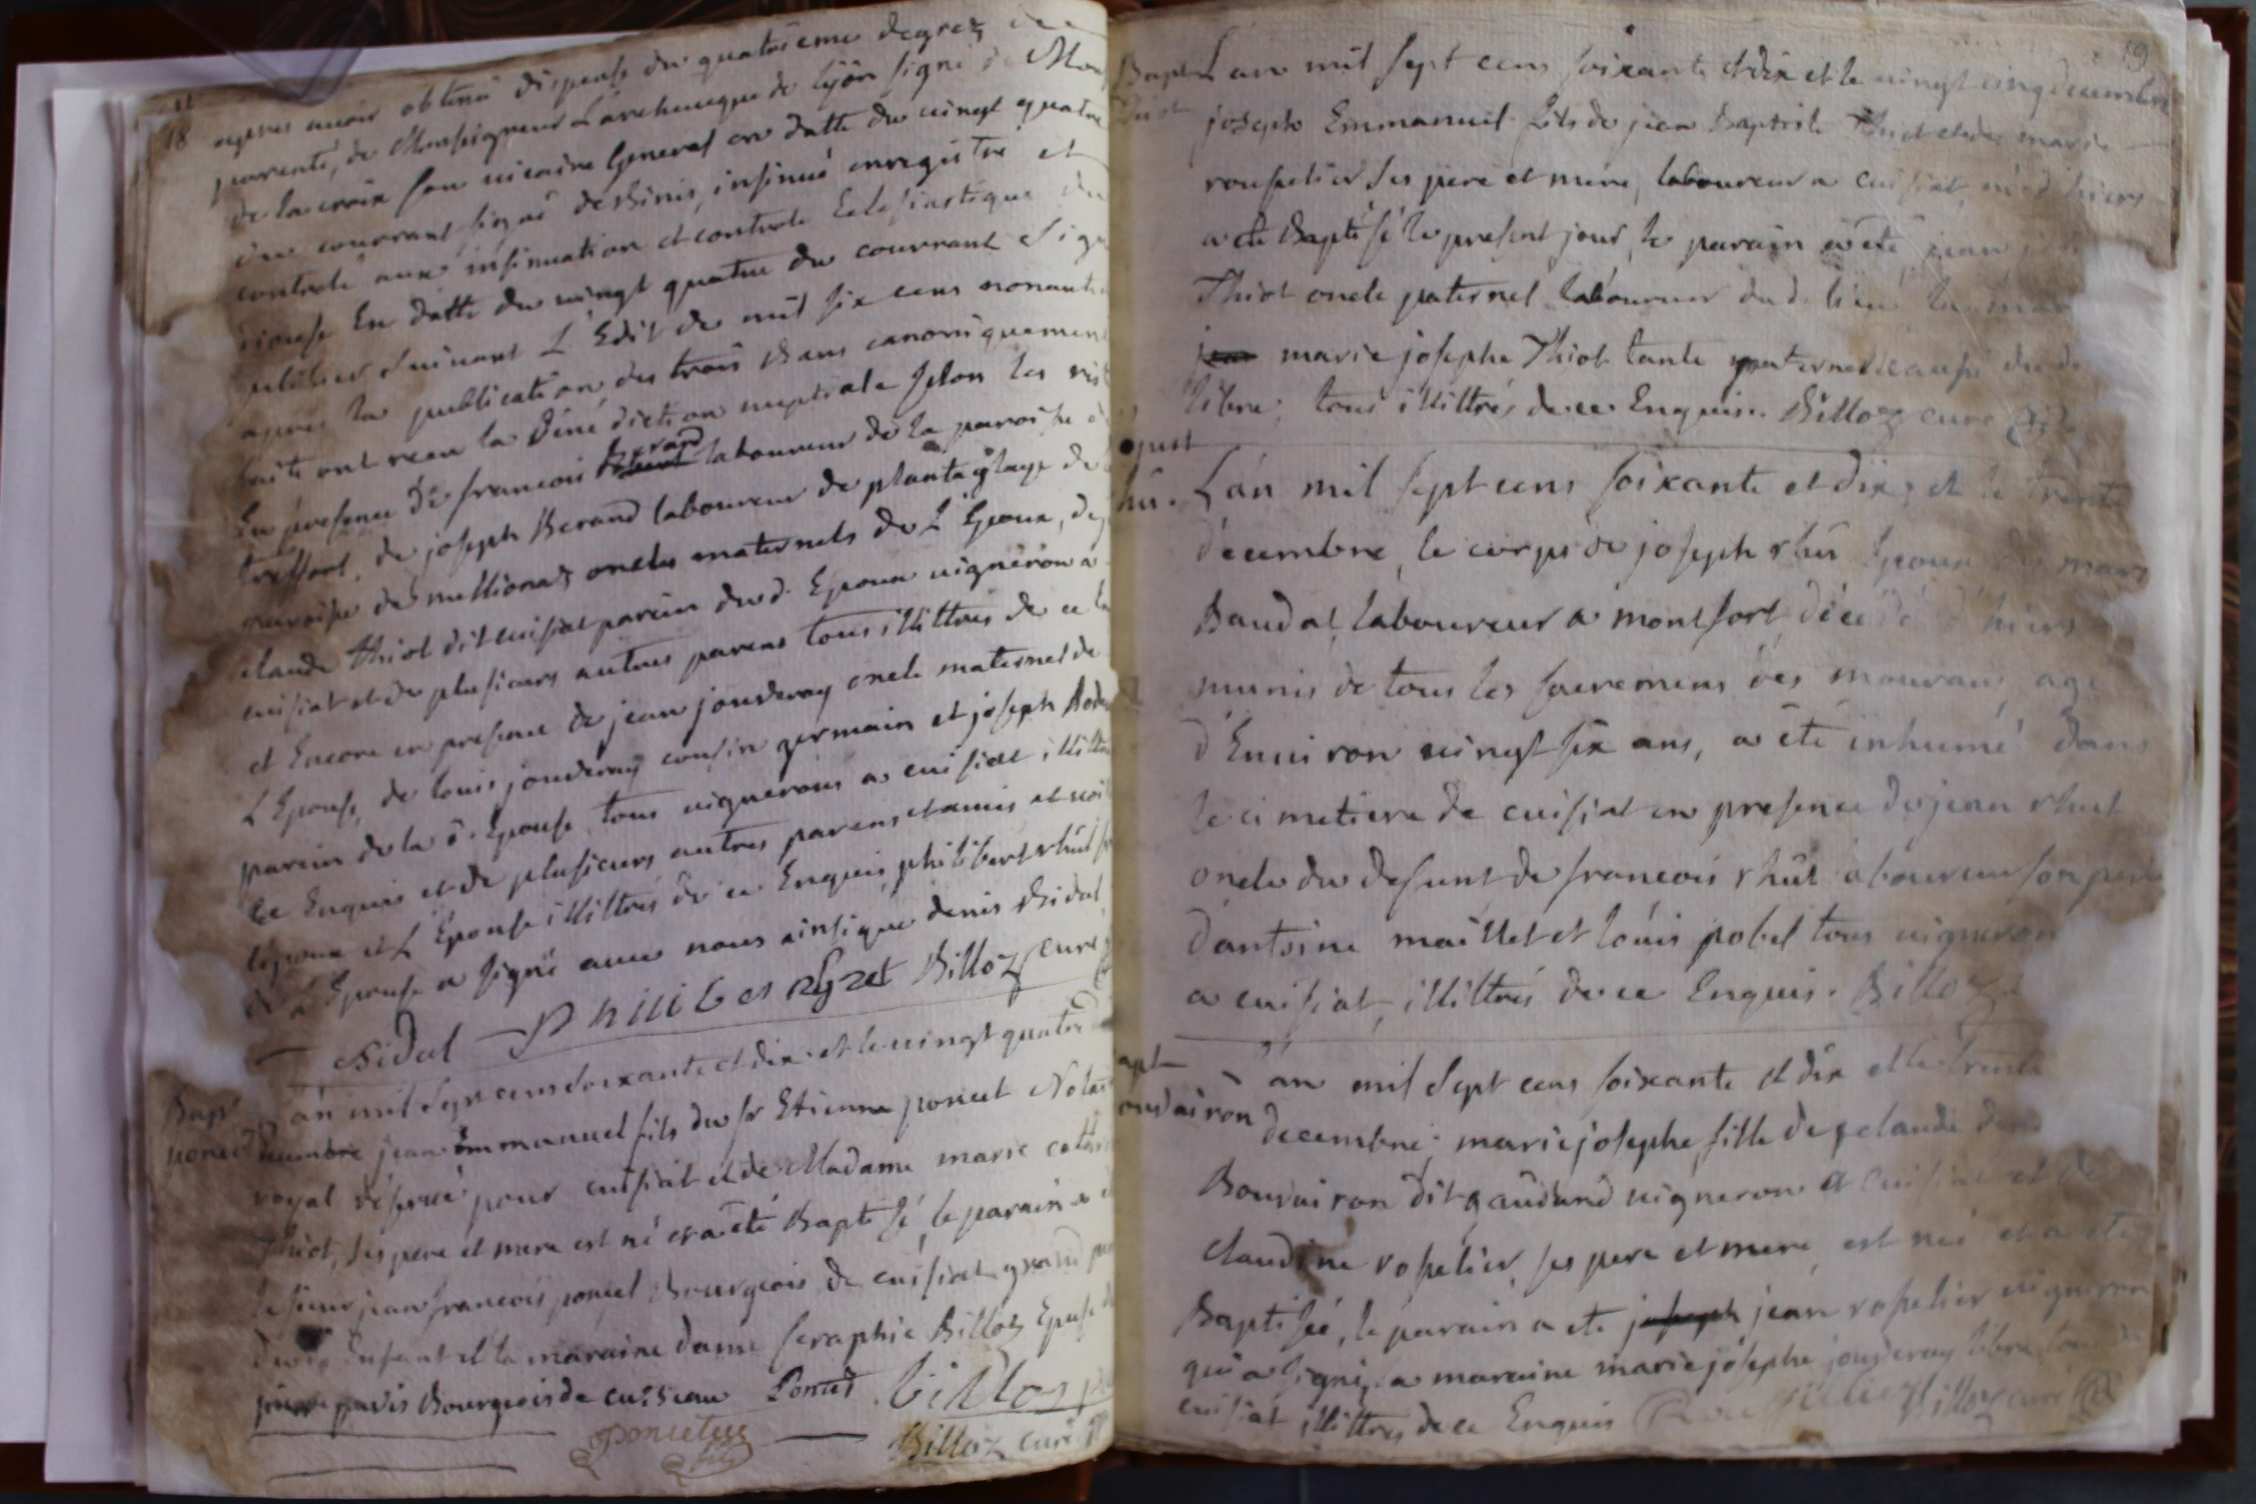 18
apres avoir obtenu dispense du quatrieme degrez de
parenté, de Monseigneur L'archeveque de lyon signé de
de la croix son vicaire General en datte du vingt quatre
du courrant signé deshinis, insinué enregistré et
controlé aux insinuation et controle Eclesiastique du
En datte du vingt quatre du courrant
suivant L'Edit de mil six cens nonante
apres la publication des trois Bans canoniquement
faite ont recu la Bénédiction nuptiale selon les
En presence de francois Berard laboureur de la paroisse
treffort, de joseph Berard laboureur de plantaglaye de
paroisse de meillionaz oncles maternels de L'Epoux, de
claude thiot dit cuisiat parein dud. Epoux vigneron a
cuisiat et de plusieurs autres parens tous illittrés de ce
et Encore en presence de jean jouderay oncle maternel de
L'Epouse, de louis jouderay cousin germain et joseph
parein de la d. Epouse tous vignerons a cuisiat illittrés
ce Enquis et de plusieurs autres parens et amis et
l'epoux et L'Epouse illittrés de ce Enquis, philibert rhut
de L'Epouse a signé avec nous ainsi que denis Bidal
Bidal Philibert Billoz curé
Bapt
poncet
L'an mil sept cens soixante et dix et le vingt quatre
decembre jean Emmanuel fils du sr Etienne poncet
royal réservé pour cuisiat et de Madame marie
Thiot, ses pere et mere est né et a été Baptisé, le parain a
le sieur jean francois poncet Bourgeois de cuisiat grand
dud. Enfant et la maraine dame seraphie Billoz Epouse
pavis Bourgeois de cuiseau Poncet Billoz
poncetus fils Billoz curé
19
Bapt
L'an mil sept cens soixante et dix et le vingt cinq decembre
joseph Emmanuel fils de jean Baptiste Thiot et de marie
roupelier ses pere et mere, laboureur a cuisiat, né d'hiers
a été Baptisé le present jour, le parain a été jean
Thiot oncle paternel laboureur dud. lieu la
marie josephe Thiot tante paternelle aussi dud.
libre, tous illittrés de ce Enquis. Billoz curé
sepult
rhu.
L'an mil sept cens soixante et dix, et le trente
decembre, le corps de joseph rhu Epoux de
Baudat, laboureur a montfort, décédé d'hiers
munis de tous les sacremens des mourans, agé
d'Environ vingt six ans, a été inhumé dans
le cimetiere de cuisiat en presence de jean rhut
oncle du defunt de francois rhut laboureur son pere
d'antoine maillet et louis pobel tous vigneron
a cuisiat, illittrés de ce Enquis. Billoz
apt
ouvairon
L'an mil sept cens soixante et dix et le trente
decembre. marie josephe fille de claude
Bouvairon dit gaudand vigneron a cuisiat et de
claudine ropelier, ses pere et mere est née et a été
Baptisée, le parain a été joseph jean ropelier vigneron
qui a signé, la maraine marie josephe jouderay libre
cuisiat illittrés de ce Enquis Billoz curé